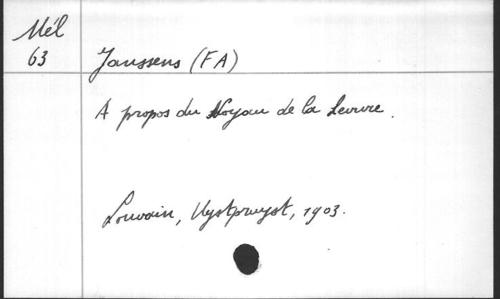 Mél
63
Janssens (FA)
A propos du Noyau de la Levure.
Louvain, Uystpruyst, 1903.